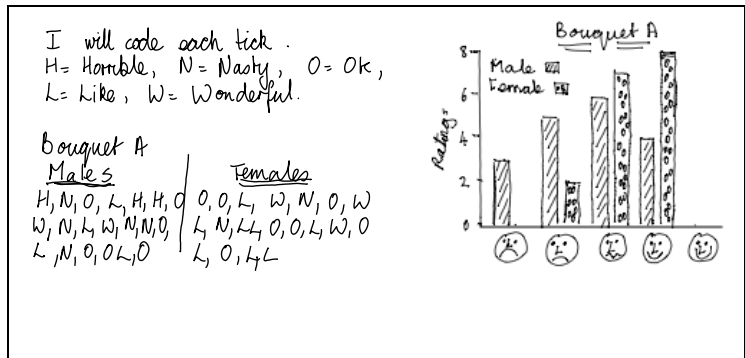 I will code each tick.
H= Horrible, N= Nasty, O= Ok,
L= Like, W= Wonderful.
Bouquet A
Males
H, N, O, L, H, H, O
W, N, L, W, N, N, O,
L, N, O, O L, O
Females
O, O, L, W, N, O, W
L, N, L, L, O, O, L, W, O
L, O, L, L
Bouquet A
Male
Female
Ratings
8
6
4
2
0